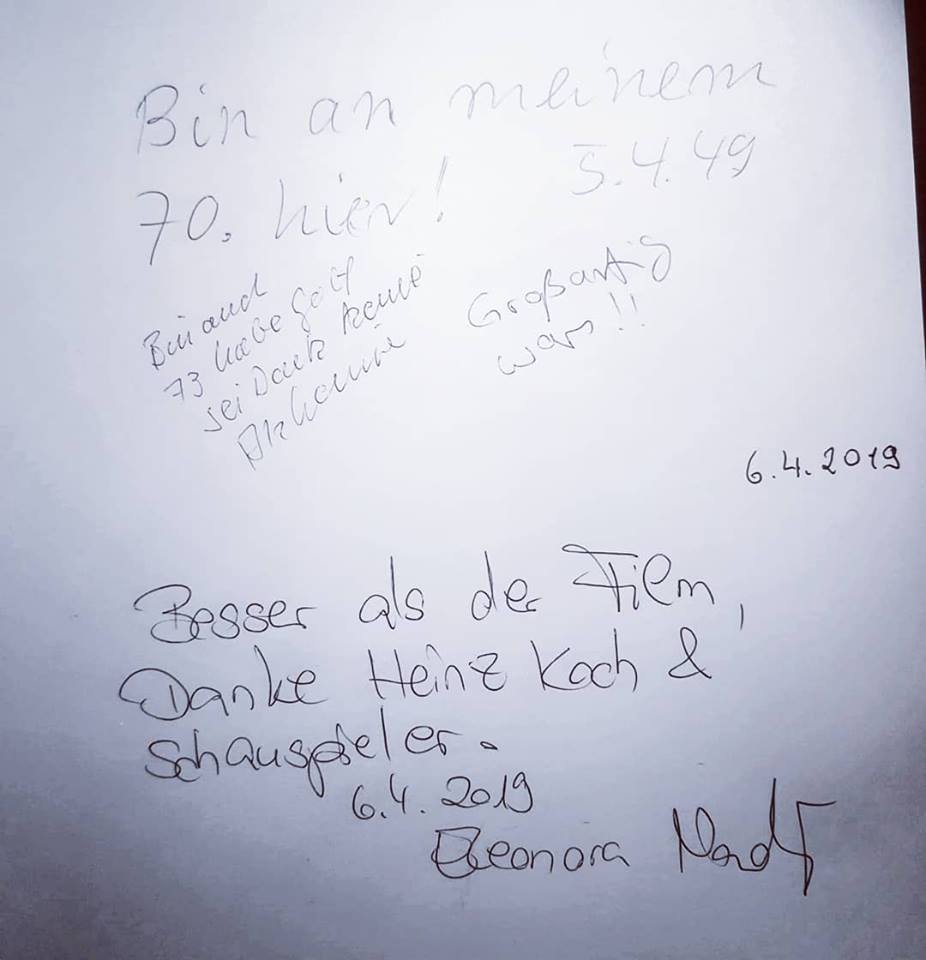 Bin an meinem
70. hier! 5.4.49
Bin auch
73 habe Gott
sei Dank keine
Großartig
wars!!
6.4.2019
Besser als der Film,
Danke Heinz Koch &
Schauspieler.
6.4.2019
Eleonora